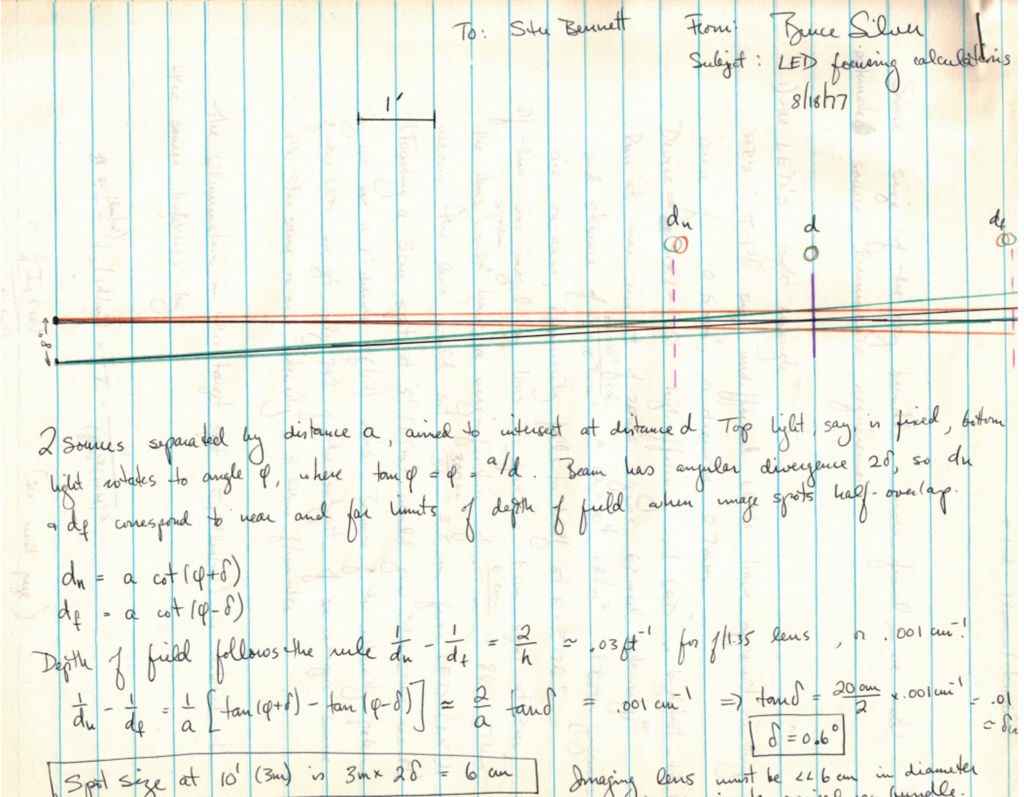 To: Stu Bennett From: Bruce Silver
Subject: LED focusing calculations
8/18/77
1'
dn d df
←8"→
2 sources separated by distance a, aimed to intersect at distance d. Top light, say, is fixed, bottom
light rotates to angle φ, where tan φ = φ = a/d. Beam has angular divergence 2δ, so dn
& df correspond to near and far limits of depth of field when image spots half-overlap.
dn = a cot(φ+δ)
df = a cot(φ-δ)
Depth of field follows the rule 1/dn - 1/df = 2/h ≈ .03 ft⁻¹ for f/1.35 lens, or .001 cm⁻¹.
1/dn - 1/df = 1/a [tan(φ+δ) - tan(φ-δ)] ≈ 2/a tanδ = .001 cm⁻¹ ⇒ tanδ = 20cm/2 × .001 cm⁻¹ = .01
δ = 0.6°
Spot size at 10' (3m) is 3m × 2δ = 6 cm Imaging lens must be << 6 cm in diameter
bundle.